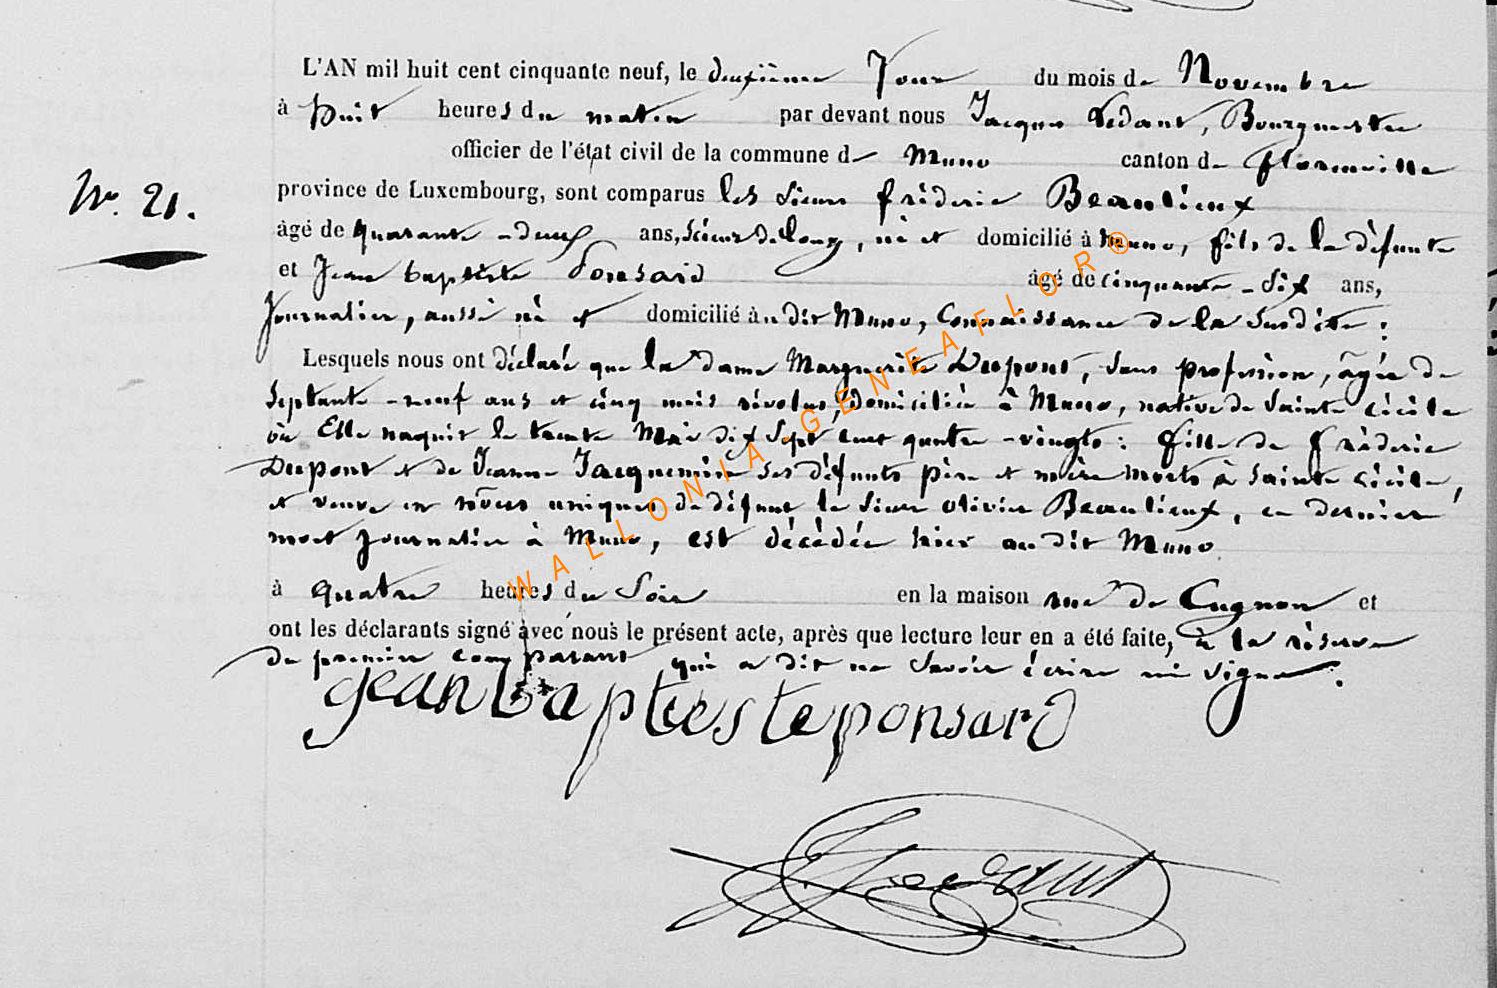 L'AN mil huit cent cinquante neuf, le deuxième Jour du mois de Novembre
à huit heures du matin par devant nous Jacques Ledant, Bourgmestre
officier de l'état civil de la commune de Muno canton de Florenville
N°. 21. province de Luxembourg, sont comparus les Sieurs fréderic Beaulieux
âgé de quarante-deux ans, Scieur de long, né et domicilié à Muno, fils de la défunte
et Jean baptiste Ponsard âgé de cinquante-six ans,
Journalier, aussi né et domicilié au dit Muno, Connaissance de la Susdite :
Lesquels nous ont déclaré que la dame Marguerite Dupont, Sans profession, âgée de
Septante-neuf ans et cinq mois révolus, domiciliée à Muno, native de Sainte Cécile
où Elle naquit le trente Mai dix Sept cent quatre-vingts : fille de fréderic
Dupont et de Jeanne Jacquemin Ses défunts père et mère morts à Sainte Cécile,
et veuve en nôces uniques de défunt le Sieur Olivier Beaulieux, ce dernier
mort Journalier à Muno, est décédée hier au dit Muno
à quatre heures du Soir en la maison rue de Cugnon et
ont les déclarants signé avec nous le présent acte, après que lecture leur en a été faite, à la réserve
du premier comparant qui a dit ne Savoir écrire ni Signer.
jean baptieste ponsard
J Ledant
WALLONIA-GENEAFLOR®